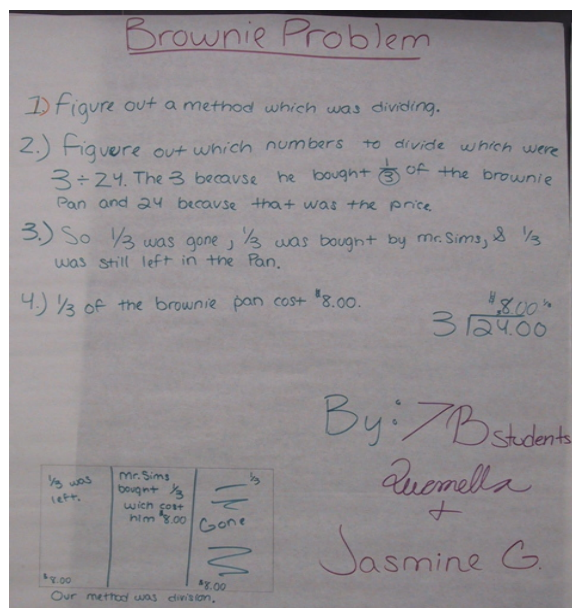 Brownie Problem
1) Figure out a method which was dividing.
2.) Figuure out which numbers to divide which were
3 ÷ 24. The 3 because he bought 1/3 of the brownie
Pan and 24 because that was the price.
3.) So 1/3 was gone, 1/3 was bought by mr. Sims, & 1/3
was still left in the Pan.
4.) 1/3 of the brownie pan cost $8.00.
$8.00
3 24.00
By: 7B students
Quemella
+
Jasmine G.
1/3 was
left.
$8.00
mr. Sims
bought 1/3
wich cost
him $8.00
1/3
Gone
$8.00
Our method was division.